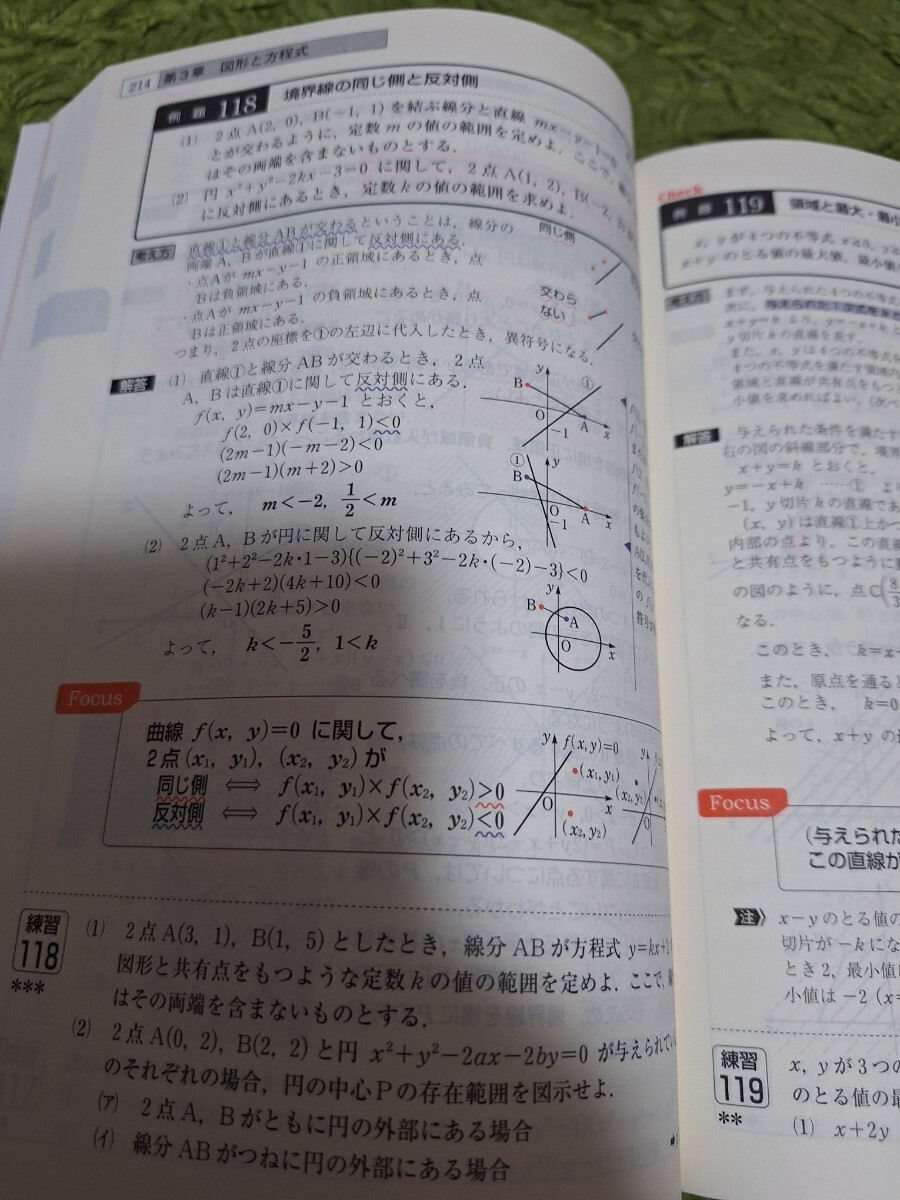 214 第3章 図形と方程式
例題 118 境界線の同じ側と反対側
(1) 2点A(2, 0), B(-1, 1) を結ぶ線分と直線 mx-y-1=0
とが交わるように, 定数 m の値の範囲を定めよ. ここで,
はその両端を含まないものとする.
(2) 円 x²+y²-2kx-3=0 に関して, 2点 A(1, 2), B(-2, 3)
に反対側にあるとき, 定数 k の値の範囲を求めよ.
考え方 直線①と線分ABが交わるということは, 線分の
両端A, Bが直線①に関して反対側にある.
・点Aが mx-y-1 の正領域にあるとき, 点
Bは負領域にある.
・点Aが mx-y-1 の負領域にあるとき, 点
Bは正領域にある.
つまり, 2点の座標を①の左辺に代入したとき, 異符号になる.
同じ側
交わら
ない
解答 (1) 直線①と線分ABが交わるとき, 2点
A, Bは直線①に関して反対側にある.
f(x, y)=mx-y-1 とおくと,
f(2, 0)×f(-1, 1)<0
(2m-1)(-m-2)<0
(2m-1)(m+2)>0
よって, m<-2, 1/2<m
(2) 2点A, Bが円に関して反対側にあるから,
(1²+2²-2k・1-3){(-2)²+3²-2k・(-2)-3}<0
(-2k+2)(4k+10)<0
(k-1)(2k+5)>0
よって, k<-5/2, 1<k
y ① B O A x -1
y ① B O A x -1
y B A O x
Focus
曲線 f(x, y)=0 に関して,
2点(x₁, y₁), (x₂, y₂) が
同じ側 ⟺ f(x₁, y₁)×f(x₂, y₂)>0
反対側 ⟺ f(x₁, y₁)×f(x₂, y₂)<0
y f(x,y)=0
(x₁,y₁)
O x
(x₂,y₂)
y
(x₂,y₂)
O
練習 118 ***
(1) 2点A(3, 1), B(1, 5) としたとき, 線分ABが方程式 y=kx+1
図形と共有点をもつような定数 k の値の範囲を定めよ. ここで,
はその両端を含まないものとする.
(2) 2点A(0, 2), B(2, 2) と円 x²+y²-2ax-2by=0 が与えられてい
のそれぞれの場合, 円の中心Pの存在範囲を図示せよ.
(ア) 2点A, Bがともに円の外部にある場合
(イ) 線分ABがつねに円の外部にある場合
Check
例題 119 領域と最大・最小
x, y が4つの不等式 x≧0, y≧
x+y のとる値の最大値, 最小値
考え方 まず, 与えられた4つの不等式
次に, 与えられた1次式をkと
x+y=k より, y=-x+k と
y切片kの直線を表す.
また, x, y は4つの不等式を
4つの不等式を満たす領域内
領域と直線が共有点をもつ
小値を求めればよい. (次ペ
解答 与えられた条件を満たす
右の図の斜線部分で, 境界
x+y=k とおくと,
y=-x+k ……① より
-1, y切片kの直線であ
(x, y) は直線①上かつ
内部の点より, この直線
と共有点をもつように動
の図のように, 点C(8/3
なる.
このとき, k=x+
また, 原点を通ると
このとき, k=0
よって, x+y の最
Focus
(与えられた
この直線が
注 x-yのとる値の
切片が-kにな
とき2, 最小値
小値は-2 (x=
練習 119 **
x, y が3つの
のとる値の最
(1) x+2y